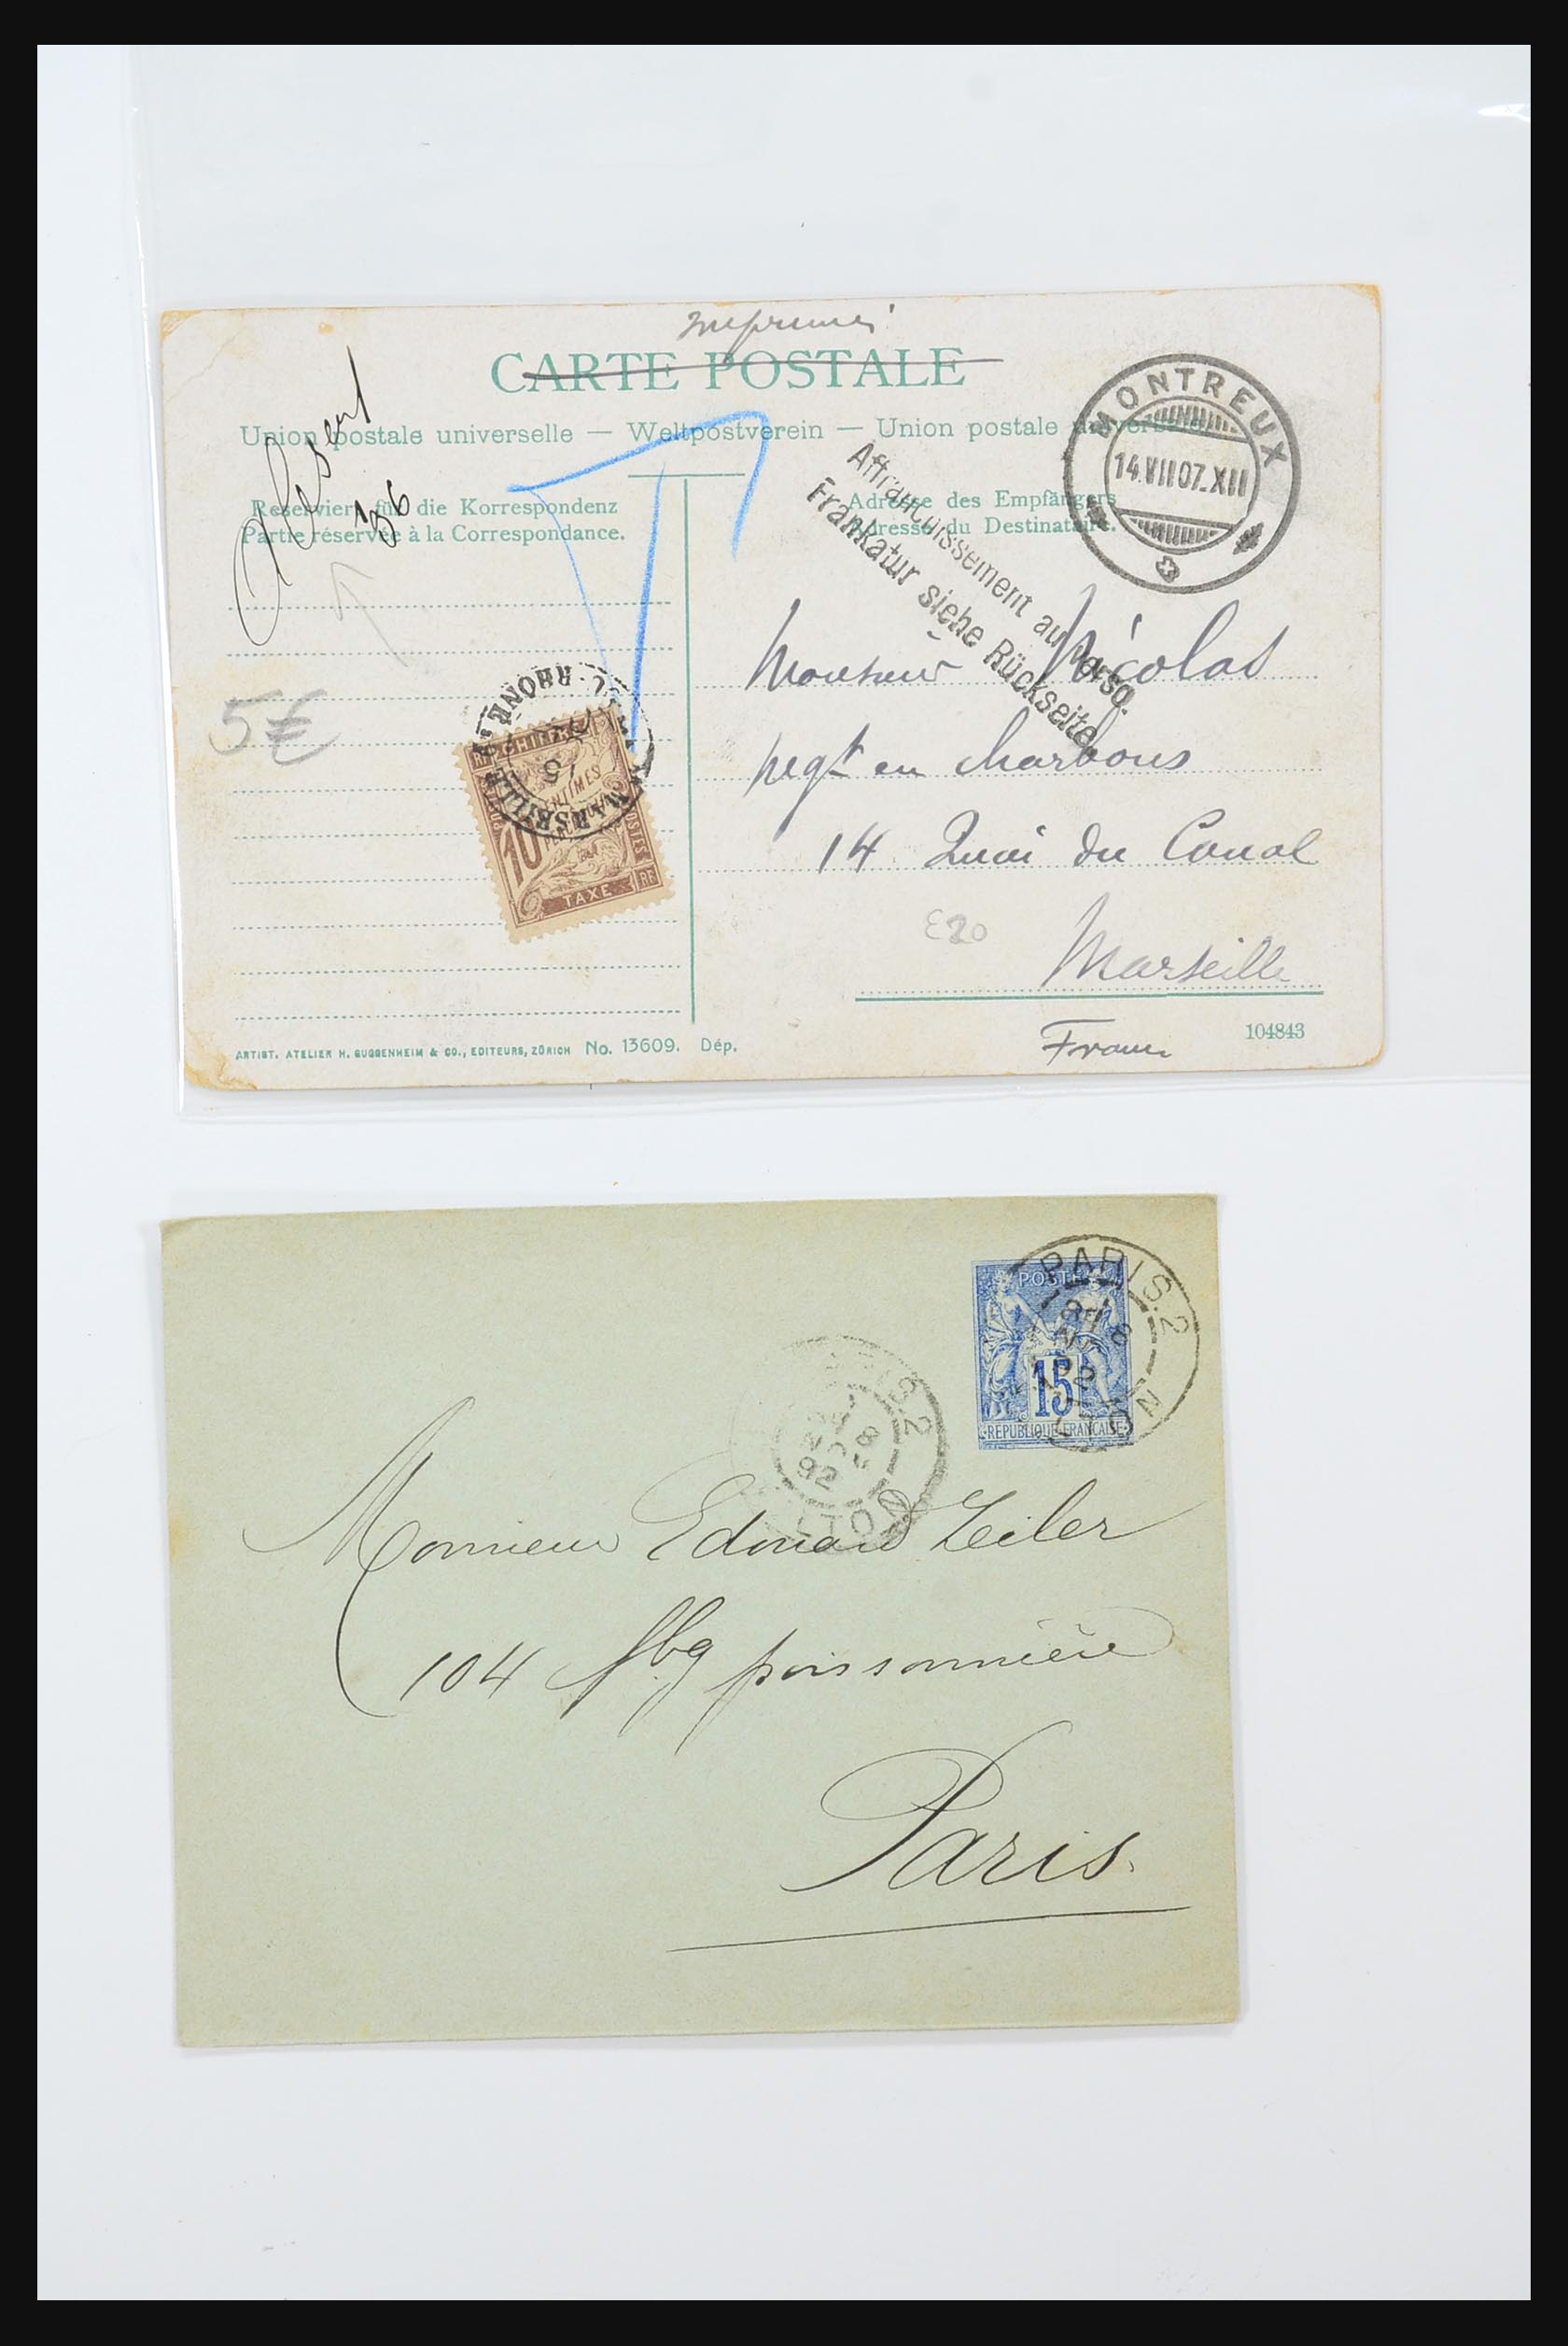 Imprimé
CARTE POSTALE
Union postale universelle — Weltpostverein — Union postale universelle
Absent
196
Reserviert für die Korrespondenz
Partie réservée à la Correspondance.
Adresse des Empfängers.
Adresse du Destinataire.
MONTREUX
14.VII07.XII
Affranchissement au verso.
Frankatur siehe Rückseite.
T
5€
MARSEILLE
RHONE
RF CHIFFRE
CENTIMES
10
POSTES
TAXE
RF
Monsieur Nicolas
negt en charbons
14 Quai du Canal
E20
Marseille
France
104843
ARTIST. ATELIER H. GUGGENHEIM & CO., EDITEURS, ZÜRICH No. 13609. Dép.
POSTE
15
REPUBLIQUE FRANCAISE
PARIS.2
92
Monsieur Edouard Zeiler
104 fbg poissonnière
Paris.